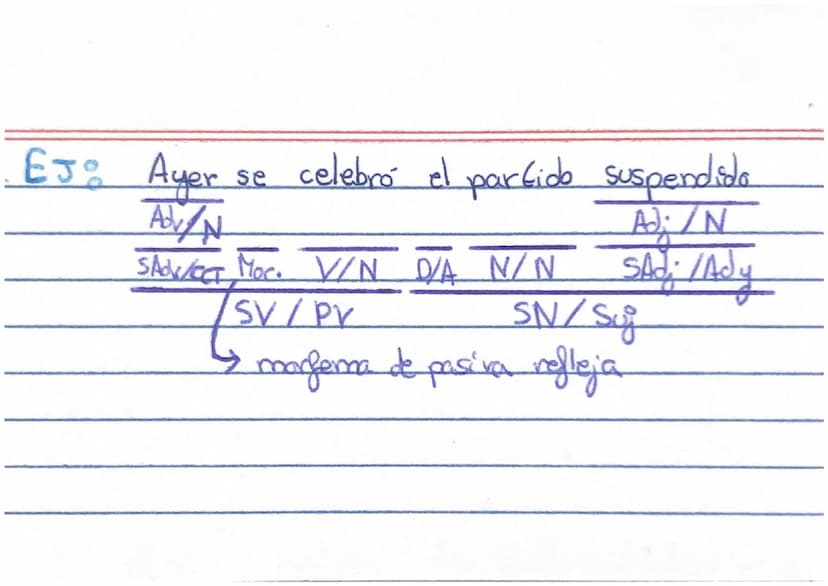 EJ: Ayer se celebró el partido suspendido
Adv/N Adj/N
SAdv/CCT Moc. V/N D/A N/N SAdj/Ady
SV/PV SN/Suj
morfema de pasiva refleja